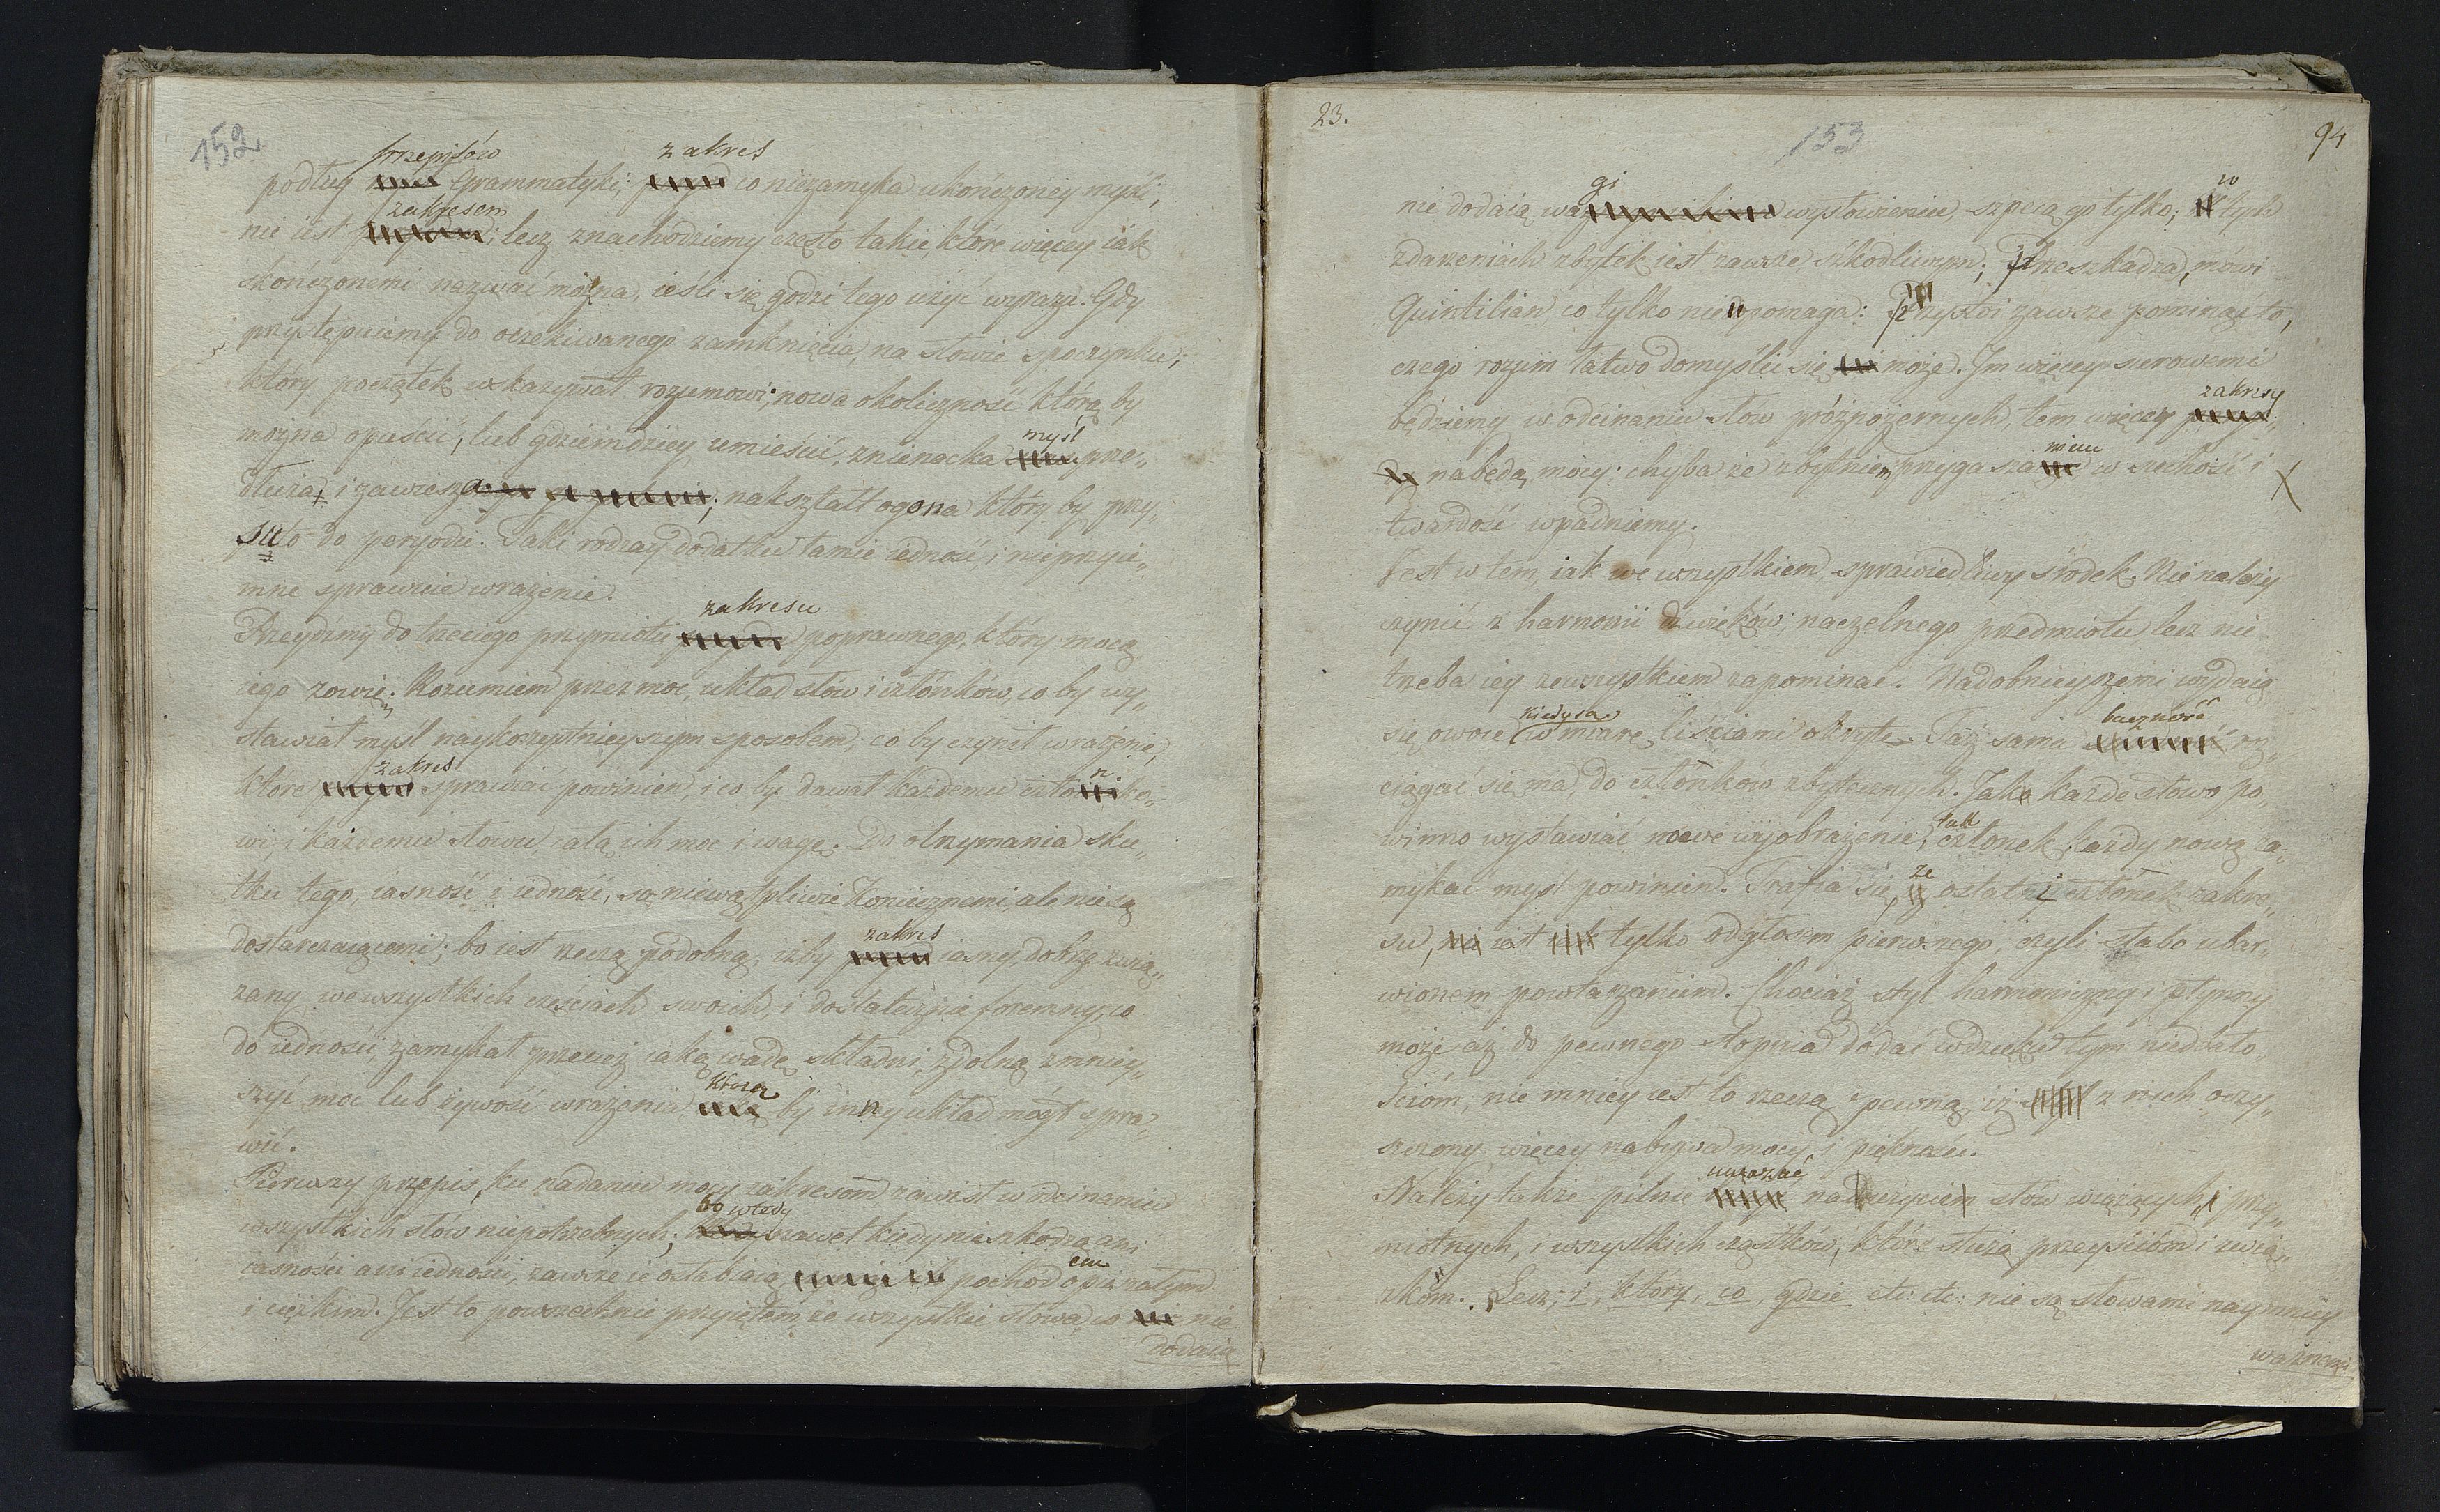 152.
przepisów zakres
podług Grammatyki; co niezamyka ukończoney myśli,
zakresem
nie iest ; lecz znachodziemy często takie, które więcey iak
skończonemi nazwać można, ieśli się godzi tego użyć wyrazu. Gdy
przystępuiemy do oczekiwanego zamknięcia, na słowie spoczynku;
który początek wskazywał rozumowi; nowa okoliczność którą by
można opuścić, lub gdzieindziey umieścić, znienacka myśl prze„
dłuża, i zawiesza ; nakształt ogona który by przy„
suto do peryodu. Taki rodzay dodatku łamie iedność, i nieprzyie„
mne sprawuie wrażenie.
zakresu
Przeydźmy do trzeciego przymiotu poprawnego, który mocą
iego zowię. Rozumiem przez moc, układ słów i człónków, co by wy„
stawiał myśl naykorzystnieyszym sposobem, co by czynił wrażenie,
zakres n
które sprawiać powinien, i co by dawał każdemu człónko„
wi, i każdemu słowu, całą ich moc i wagę. Do otrzymania sku„
tku tego, iasność i iedność, są niewątpliwie koniecznemi, ale nie są
zakres
dostarczaiącemi; bo iest rzeczą podobną, iżby iasny, dobrze zwią„
zany we wszystkich częściach swoich, i dostatecznie foremny, co
do iedności, zamykał przecież iaką wadę składni, zdolną zmniey„
szyć moc lub żywość wrażenia, któreą by inny układ mógł spra„
wić.
Pierwszy przepis, ku nadaniu mocy zakresóm zawisł w odcinaniu
bo wtedy
wszystkich słów niepotrzebnych; nawet kiedy nieszkodzą ani
iasności ani iedności, zawsze ie osłabiaią, pochod opiszałym
i ciężkim. Jest to powszechnie przyiętem, że wszystkie słowa co nie
dodaią
23.
153
94
gi w
nie dodaią wagi wysłowieniu, szpecą go tylko; w tych
zdarzeniach zbytek iest zawsze szkodliwym; Przeszkadza, mówi
Quintilian, co tylko nie pomaga: Przystoi zawsze pominąć to,
czego rozum łatwo domyślić się może. Im więcey surowemi
zakresy
będziemy w odcinaniu słow próżnożernych, tem więcey
nabędą mocy: chyba że zbytniem przyga szaniu w suchość i
twardość wpadniemy.
Jest w tem, iak we wszystkiem, sprawiedliwy środek. Nie należy
czynić z harmonii dźwięków, naczelnego przedmiotu lecz nie
trzeba iey zewszystkiem zapominać. Nadobnieyszemi wydaią
kiedy są baczność
się owoce w miarę liściami okryte. Taż sama roz„
ciągać się ma do człónków zbytecznych. Jak każde słowo po„
winno wystawiać nowe wyobrażenie, tak człónek każdy nową za„
mykać myśl powinien. Trafia się, że ostatni człónek zakre„
su, iest tylko odgłosem pierwszego, czyli słabo ubar„
wionem powtarzaniem. Chociaż styl harmoniczny i płynny
może aż do pewnego stopnia dodać wdzięku tym niedbało„
ścióm, nie mniey iest to rzeczą pewną, iż z nich oczy„
szczony więcey nabywa mocy, i piękności.
uważać
Należy także pilnie nad użyciem słów wiążących, i przy„
miotnych, i wszystkich cząstków, które służą przeyścióm i zwią„
zkóm. Lecz, i, który, co, gdzie etc: etc: nie są słowami naymniey
ważnemi